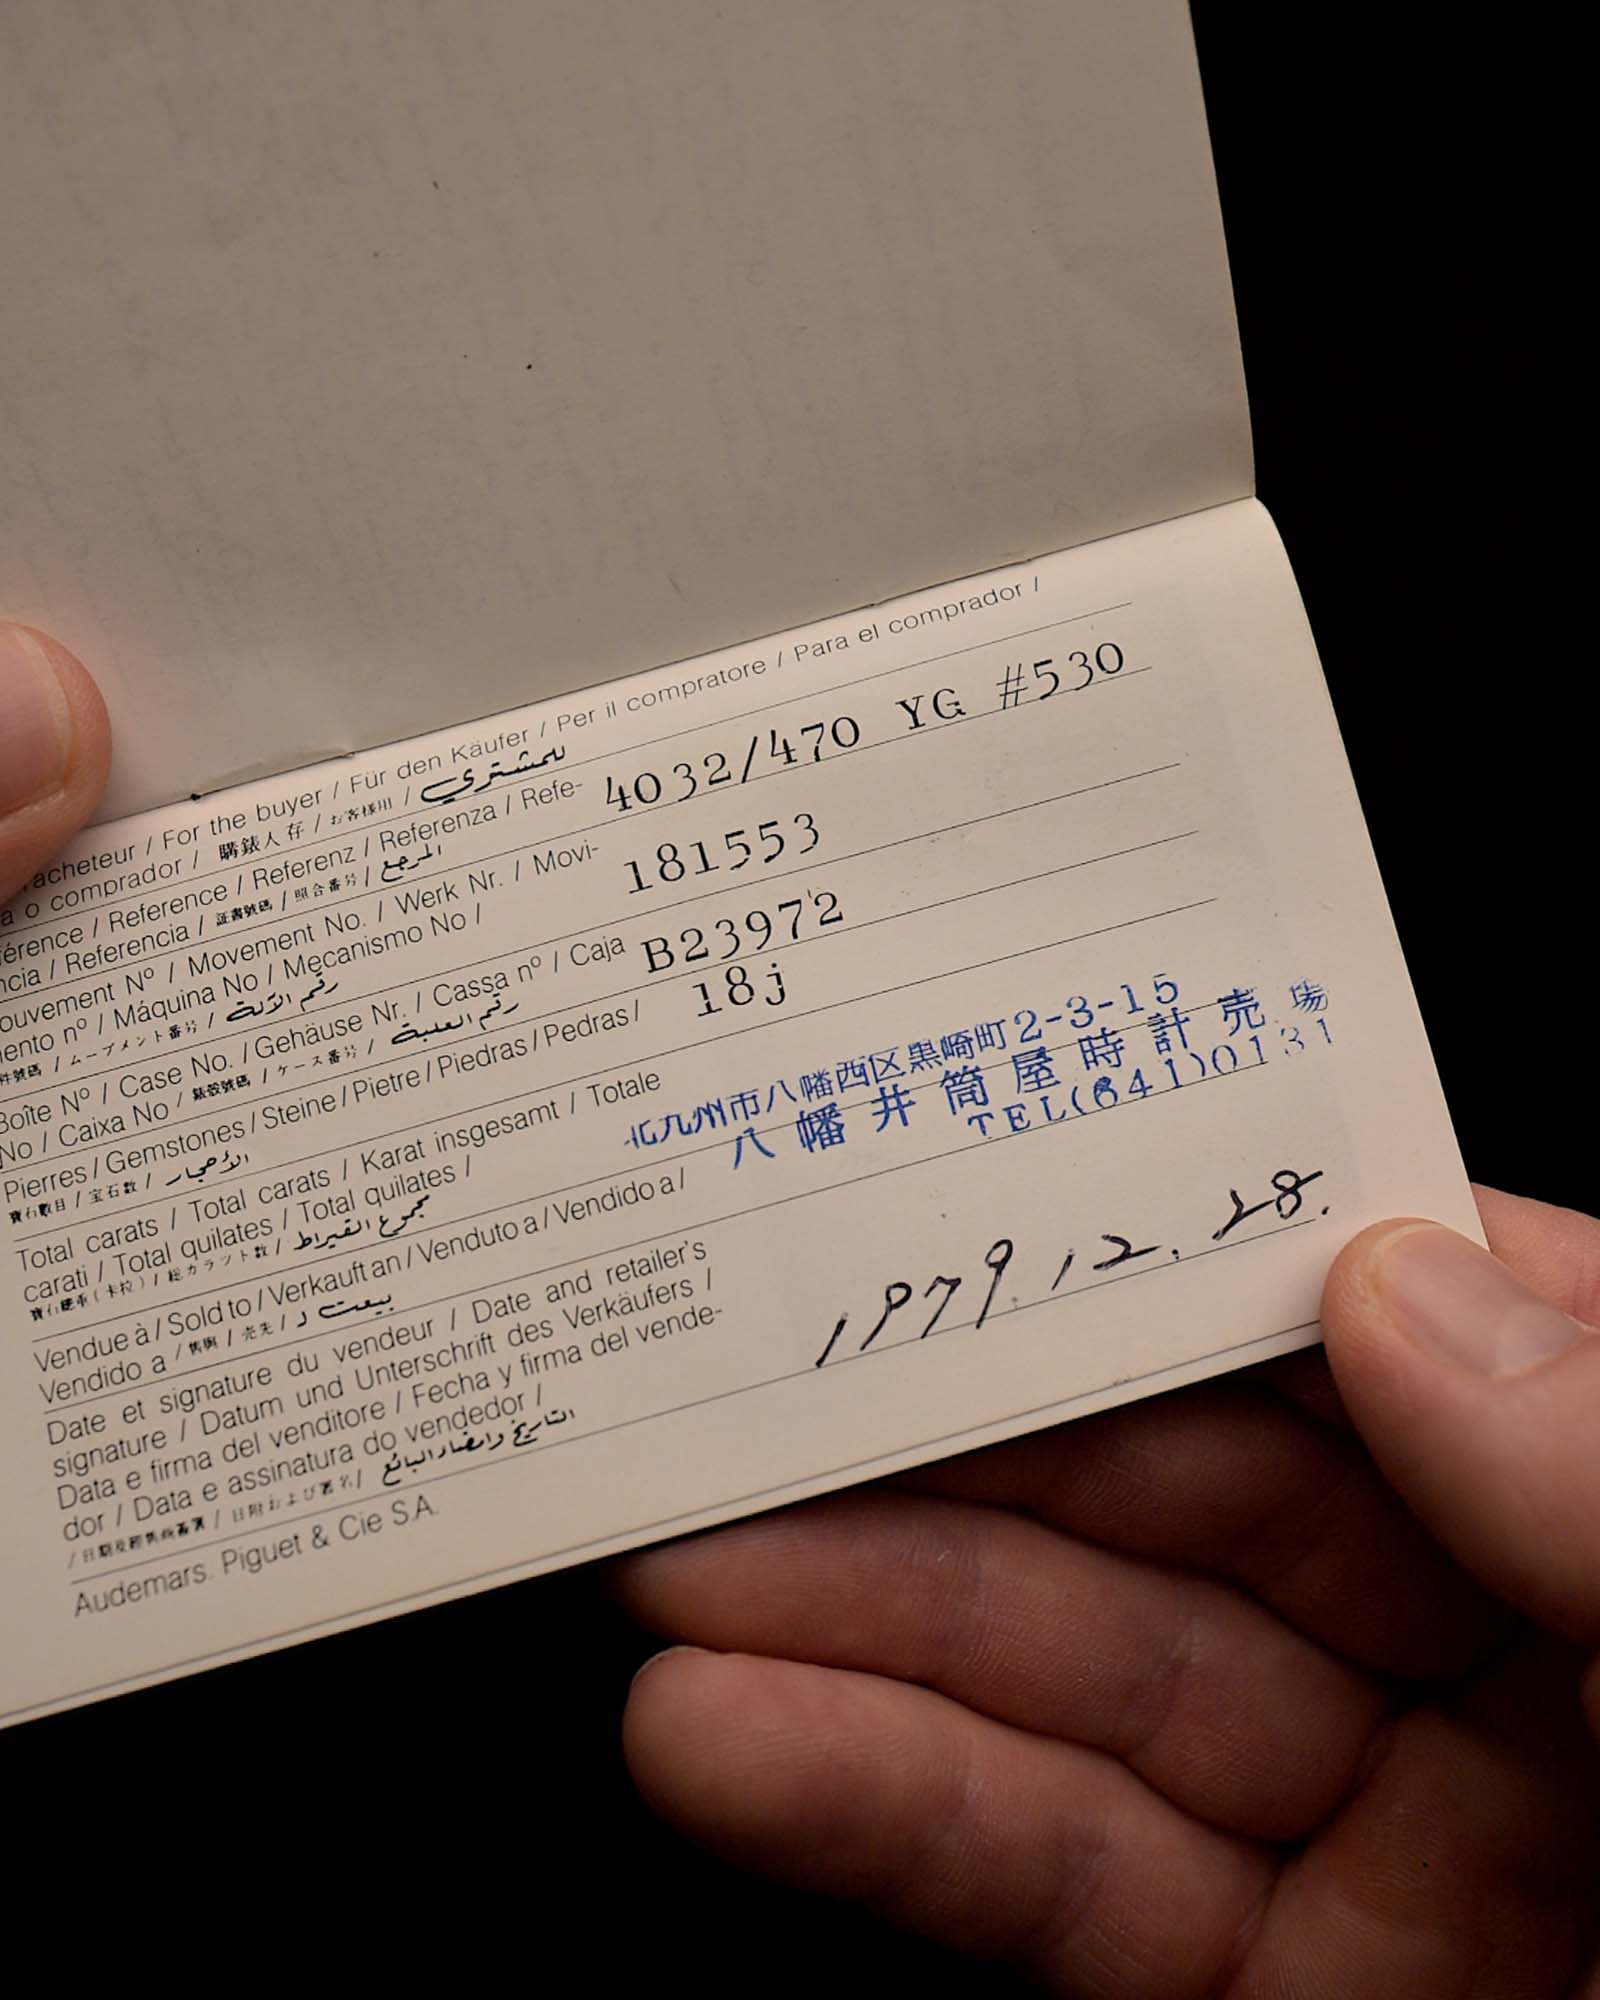 acheteur / For the buyer / Für den Käufer / Per il compratore / Para el comprador /
a o comprador / 購錶人存 / お客様用 / للمشتري
érence / Reference / Referenz / Referenza / Refe-
ncia / Referencia / 証書號碼 / 照合番号 / المرجع
4032/470 YG #530
ouvement Nº / Movement No. / Werk Nr. / Movi-
ento nº / Máquina No / Mecanismo No /
件號碼 / ムーブメント番号 / رقم الآلة
181553
Boîte Nº / Case No. / Gehäuse Nr. / Cassa nº / Caja
No / Caixa No / 錶殼號碼 / ケース番号 / رقم العلبة
B23972
Pierres / Gemstones / Steine / Pietre / Piedras / Pedras /
寶石數目 / 宝石数 / الأحجار
18j
Total carats / Total carats / Karat insgesamt / Totale
carati / Total quilates / Total quilates /
寶石總重(卡拉) / 総カラット数 / مجموع القيراط
北九州市八幡西区黒崎町2-3-15
八幡井筒屋時計売場
TEL(641)0131
Vendue à / Sold to / Verkauft an / Venduto a / Vendido a /
Vendido a / 售與 / 売先 / بيعت لـ
Date et signature du vendeur / Date and retailer's
signature / Datum und Unterschrift des Verkäufers /
Data e firma del venditore / Fecha y firma del vende-
dor / Data e assinatura do vendedor /
/ 日付および署名 / التاريخ وامضاء البائع
1979.12.28.
Audemars. Piguet & Cie S.A.